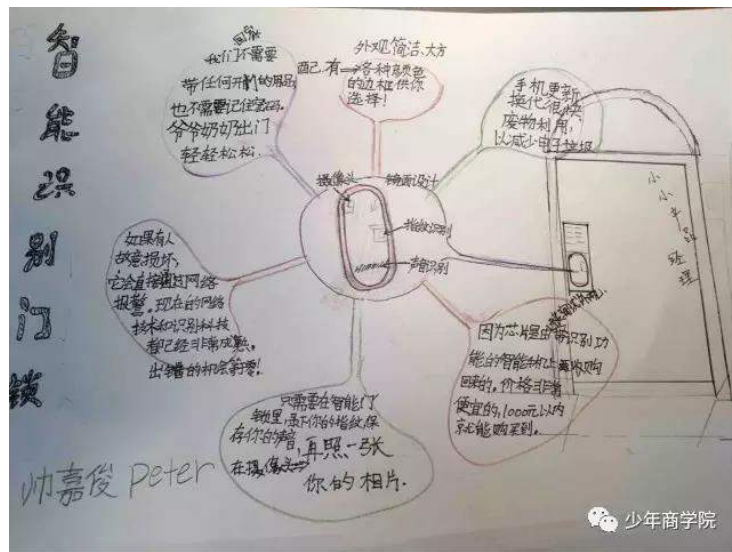 智能识别门锁
我们不需要
带任何开门的用品,
也不需要记住密码。
爷爷奶奶出门
轻轻松松.
外观简洁、大方
有
各种颜色
的边框供你
选择!
手机更新
换代很快
废物利用,
以减少电子垃圾
摄像头
镜面设计
指纹识别
声音识别
小小
经理
如果有人
故意损坏,
它会直接通过网络
报警。现在的网络
技术和识别科技
都已经非常成熟。
出错的机会等零!
因为芯片是由带识别功
能的智能手机上
回来的。价格非常
便宜的,1000元以内
就能购买到。
只需要在智能门
锁里,录下你的指纹,保
存你的声音,再照一张
在摄像头
你的相片.
帅嘉俊 Peter
少年商学院